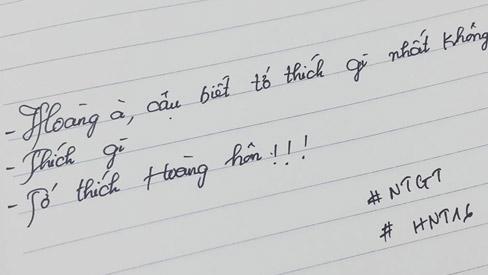 - Hoàng à, cậu biết tớ thích gì nhất không
- Thích gì
- Tớ thích Hoàng hôn!!!
# NTGT
# HNT16